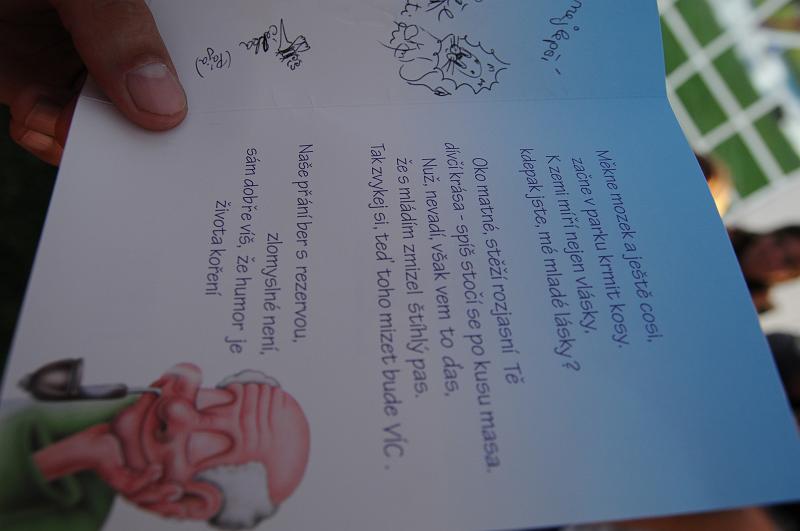 Měkne mozek a ještě cosi,
začne v parku krmit kosy.
K zemi míří nejen vlásky,
kdepak jste, mé mladé lásky?
Oko matné, stěží rozjasní Tě
dívčí krása - spíš stočí se po kusu masa.
Nuž, nevadí, však vem to ďas,
že s mládím zmizel štíhlý pas.
Tak zvykej si, teď toho mizet bude víc.
Naše přání ber s rezervou,
zlomyslné není,
sám dobře víš, že humor je
života koření